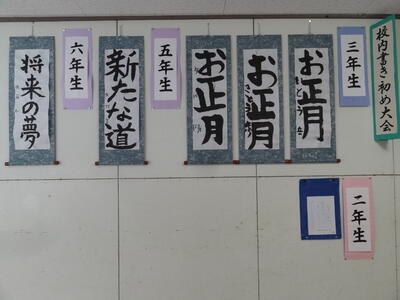 校内書き初め大会
三年生
お正月
お正月
お正月
五年生
新たな道
六年生
将来の夢
二年生